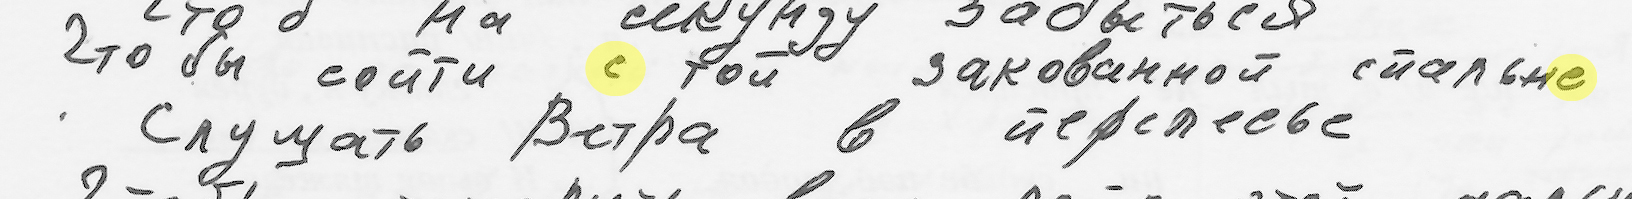 Что б на секунду забыться
Что бы сойти с той закованной спальне
Слушать Ветра в перелесье